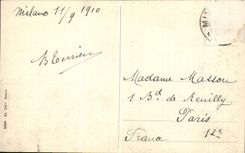 Milano 11/9 1910
Madame Masson
1 Bd de Reuilly
Paris
France 12e